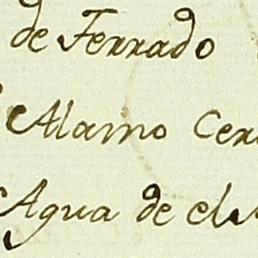 de Ferrado
Alamo Cer
Agua de el